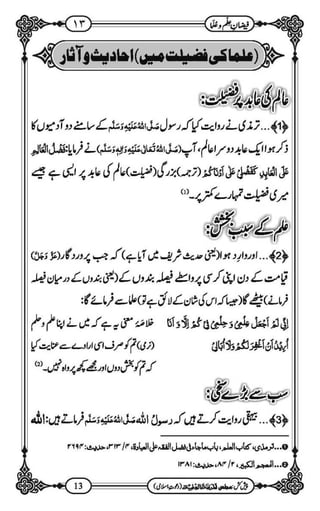 فیضانِ علم و علما
۱۳
(علما کی فضیلت میں) احادیث و آثار
عالم کی عابد پر فضیلت:
﴿1﴾... ترمذی نے روایت کیا کہ رسول صَلَّی اللهُ عَلَیْہِ وَسَلَّم کے سامنے دو آدمیوں کا
ذکر ہوا ایک عابد دوسرا عالم، آپ (صَلَّی اللهُ تَعَالٰی عَلَیْہِ وَاٰلِہٖ وَسَلَّم) نے فرمایا: فَضْلُ الْعَالِمِ
عَلَی الْعَابِدِ کَفَضْلِیْ عَلٰی اَدْنَاکُمْ (ترجمہ) بزرگی (فضیلت) عالم کی عابد پر ایسی ہے جیسے
میری فضیلت تمہارے کمتر پر۔(1)
علم کے سبب بخشش:
﴿2﴾... اور وارد ہوا (یعنی حدیث شریف میں آیا ہے) کہ جب پروردگار (عَزَّوَجَلَّ)
قیامت کے دن اپنی کرسی پر واسطے فیصلہ بندوں کے (یعنی بندوں کے درمیان فیصلہ
فرمانے) بیٹھے گا (جیسا کہ اس کی شان کے لائق ہے تو) علما سے فرمائے گا:
اِنِّیْ لَمْ اَجْعَلْ عِلْمِیْ وَحِلْمِیْ فِیْکُمْ اِلَّا وَ اَنَا
اُرِیْدُ اَنْ اَغْفِرَ لَکُمْ وَلَا اُبَالِیْ
خلاصۂ معنی یہ ہے کہ میں نے اپنا علم و حلم
(نرمی) تم کو صرف اسی ارادے سے عنایت کیا
کہ تم کو بخش دوں اور مجھے کچھ پرواہ نہیں۔(2)
سب سے بڑے سخی:
﴿3﴾... بیہقی روایت کرتے ہیں کہ رسولُ الله صَلَّی اللهُ عَلَیْہِ وَسَلَّم فرماتے ہیں: الله
1... ترمذی، کتاب العلم، باب ماجاء فی فضل الفقہ علی العبادۃ، ۴/ ۳۱۳، حدیث: ۲۶۹۴
2... المعجم الکبیر، ۲/ ۸۴، حدیث: ۱۳۸۱
پیش کش: مجلس (دعوتِ اسلامی)
13